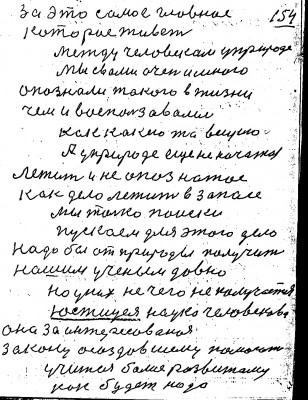 154
За это самое главное
которое живет
между человеком и природе
мы с вами очен много
опознали такого в жизни
чем и воспользавалис
как какею то вещию
А у природе еще не початое
лежит и не опознатое
как дело лежит в запасе
мы толко поиски
пускаем для этого дело
надо бы от природы получит
нашим ученым довно
но у них не чего не получается
юстицея наука человеков
она заинтересованоя
закону создовшему помогат
учится боли развитаму
как будет надо